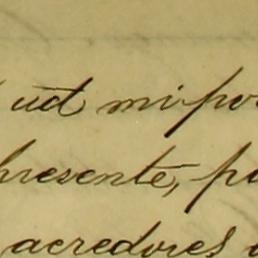 ud mi po
presente, p
acredores